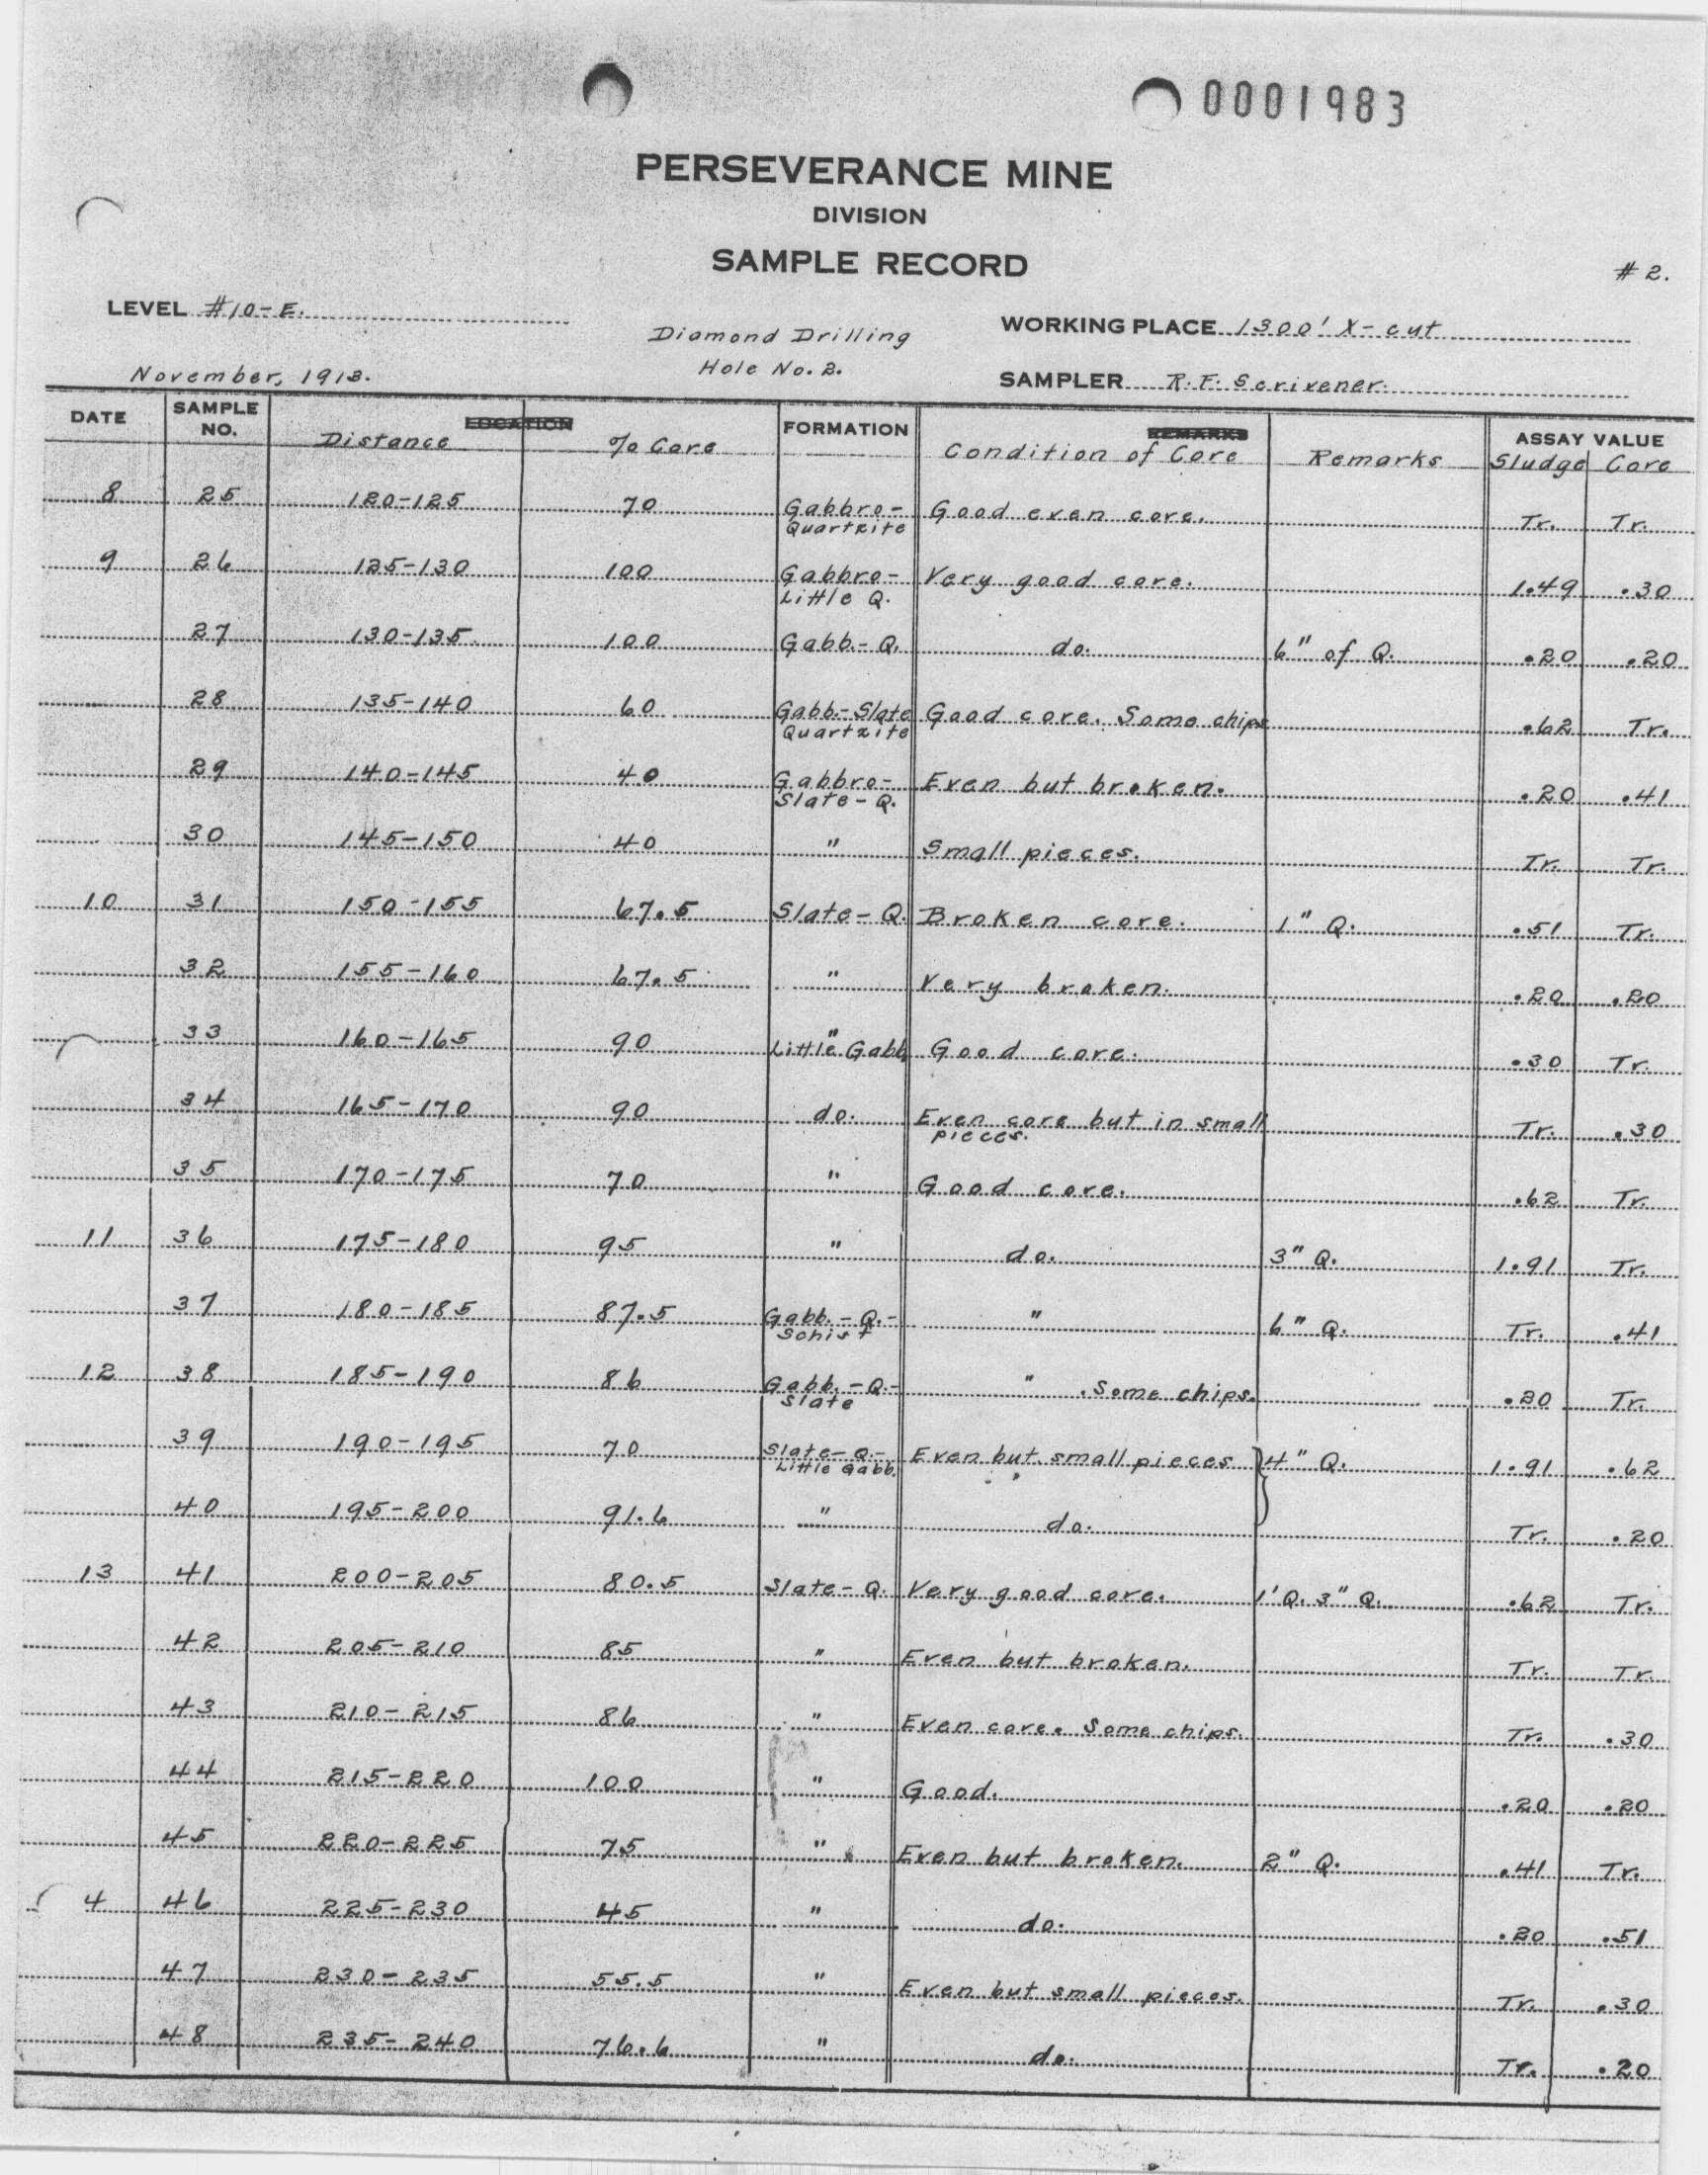 0001983
PERSEVERANCE MINE
DIVISION
SAMPLE RECORD
# 2.
LEVEL #10-E.
Diamond Drilling
WORKING PLACE 1300' X-cut
November, 1913.
Hole No. 2.
SAMPLER R. F. Scrivener.
DATE SAMPLE NO. LOCATION Distance % Core FORMATION REMARKS Condition of Core Remarks ASSAY VALUE Sludge Core
8 25 120-125 70 Gabbro- Quartzite Good even core. Tr. Tr.
9 26 125-130 100 Gabbro- Little Q. Very good core. 1.49 .30
27 130-135 100 Gabb.-Q. do. 6" of Q. .20 .20
28 135-140 60 Gabb.-Slate Quartzite Good core. Some chips .62 Tr.
29 140-145 40 Gabbro- Slate-Q. Even but broken. .20 .41
30 145-150 40 " Small pieces. Tr. Tr.
10 31 150-155 67.5 Slate-Q. Broken core. 1" Q. .51 Tr.
32 155-160 67.5 " Very broken. .20 .20
33 160-165 90 " Little Gabb. Good core. .30 Tr.
34 165-170 90 do. Even core but in small pieces. Tr. .30
35 170-175 70 " Good core. .62 Tr.
11 36 175-180 95 " do. 3" Q. 1.91 Tr.
37 180-185 87.5 Gabb.-Q.- Schist " 6" Q. Tr. .41
12 38 185-190 86 Gabb.-Q.- Slate " . Some chips. .20 Tr.
39 190-195 70 Slate-Q.- Little Gabb. Even but small pieces } 4" Q. 1.91 .62
40 195-200 91.6 " do. Tr. .20
13 41 200-205 80.5 Slate-Q. Very good core. 1' Q. 3" Q. .62 Tr.
42 205-210 85 " Even but broken. Tr. Tr.
43 210-215 86 " Even core. Some chips. Tr. .30
44 215-220 100 " Good. .20 .20
45 220-225 75 " Even but broken. 2" Q. .41 Tr.
4 46 225-230 45 " do. .20 .51
47 230-235 55.5 " Even but small pieces. Tr. .30
48 235-240 76.6 " do. Tr. .20